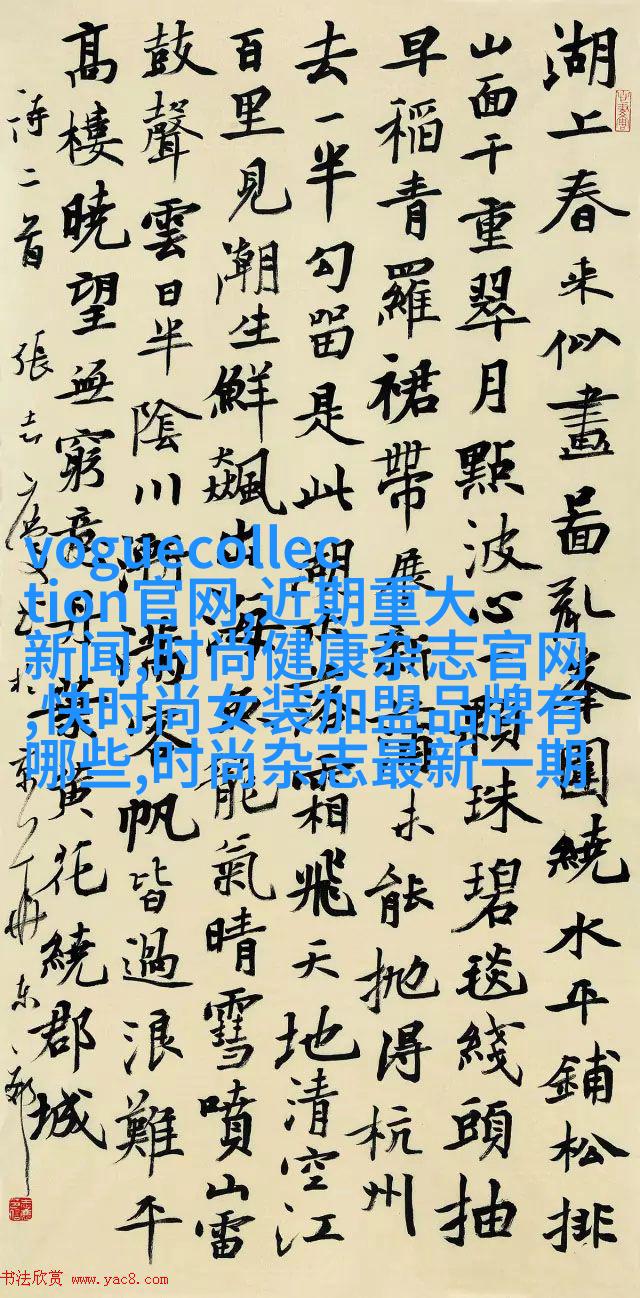 湖上春来似畫啚亂峯圍繞水平鋪松排
山面千重翠月點波心一顆珠碧毯綫頭抽
早稻青羅裙帶展新蒲未能抛得杭州
去一半勾留是此湖木落霜飛天地清空江
百里見潮生鮮飆出海魚龍氣晴雪噴山雷
鼓聲雲日半陰川漸滿客帆皆過浪難平
高樓曉望無窮意丹葉黄花繞郡城
詩二首 張志
voguecollec
tion官网,近期重大
新闻,时尚健康杂志官网
,快时尚女装加盟品牌有
哪些,时尚杂志最新一期
书法欣赏 www.yac8.com